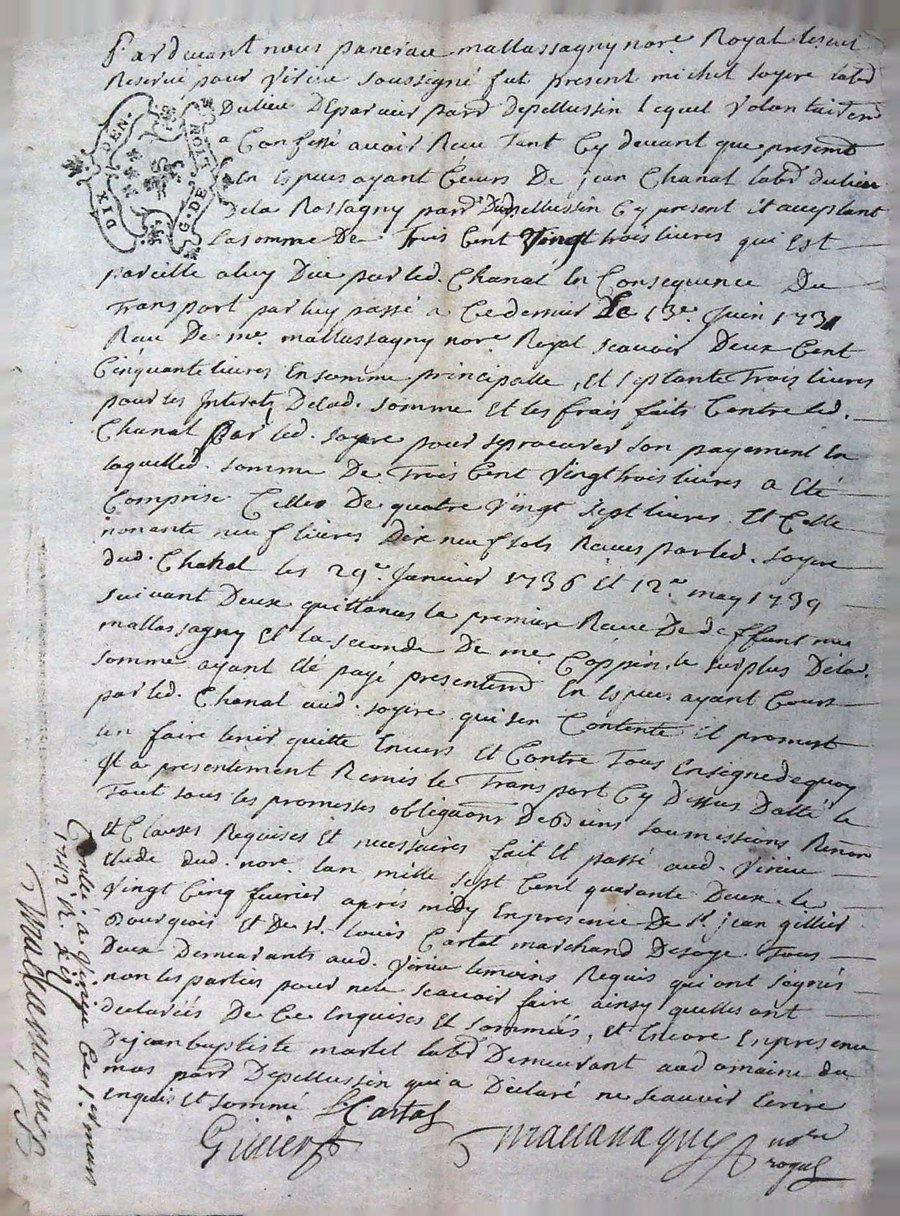 Pardevant nous pancrace mallassagny nore Royal
Reservé pour Virieu soussigné fut present michel soyere labr
Dulieu DEparvier parr Depellussin lequel Volontairemt
a Confessé avoir Receu Tant Cy devant que presentemt
En Especes ayant Cours De jean Chanal labr dulieu
Dela Rossagny parr Dudt pellussin Cy present et acceptant
Lasomme De Trois Cent Vingt trois livres qui Est
pareille aluy Due parled. Chanal En Consequence Du
Transport parluy passé a Cedernier Le 13e. Juin 1731
Receu De me. mallassagny nore Royal scavoir Deux Cent
Cinquante livres En somme principalle, Et septante Trois livres
pour les Interets Delad. somme Et les frais faits Contre led.
Chanal Par led. soyere pour seprocurer son payement En
laquelled. somme De Trois Cent Vingt trois livres a Eté
Comprise Celles De quatre Vingt sept livres Et Celle
nonante neuf livres Dix neuf sols Receues parled. soyere
dud. Chanal les 29e. Janvier 1736 Et 12e. may 1739
suivant Deux quittances la premiere Receue De deffunt me
mallassagny Et la seconde De me. Coppin, le surplus Delad.
somme ayant Eté payé presentemt En Especes ayant Cours
parled. Chanal aud. soyere qui sen Contente Et promest
len faire tenir quitte Envers Et Contre Tous Ensigne dequoy
Il a presentement Remis le Transport Cy Dessus Datté le
Tout sous les promesses obligaons De Biens soumissions Renon
Et Clauses Requises Et necessaires fait Et passé aud. Virieu
Etude dud. nore. lan mille sept Cent quarante Deux. le
Vingt Cinq fevrier aprés midy Enpresence De sr. jean gillier
Bourgeois Et De sr. louis Cartal marchand De soye. Tous
Deux Demeurants aud. Virieu temoins Requis qui ont signés
non les parties pour ne le scavoir faire ainsy quelles ont
declarées De Ce Enquises Et sommées, Et Encore Enpresence
Dejean baptiste martel labr Demeurant audomaine du
mas parr Depellussin qui a Declaré ne scavoir Ecrire
Enquis Et sommé
L Cartal
Gillier
Mallassagny nore
royal
DIX DEN.
G. DE
Controllé a Virieu Ce 1er mars
1742 R.
Mallassagny